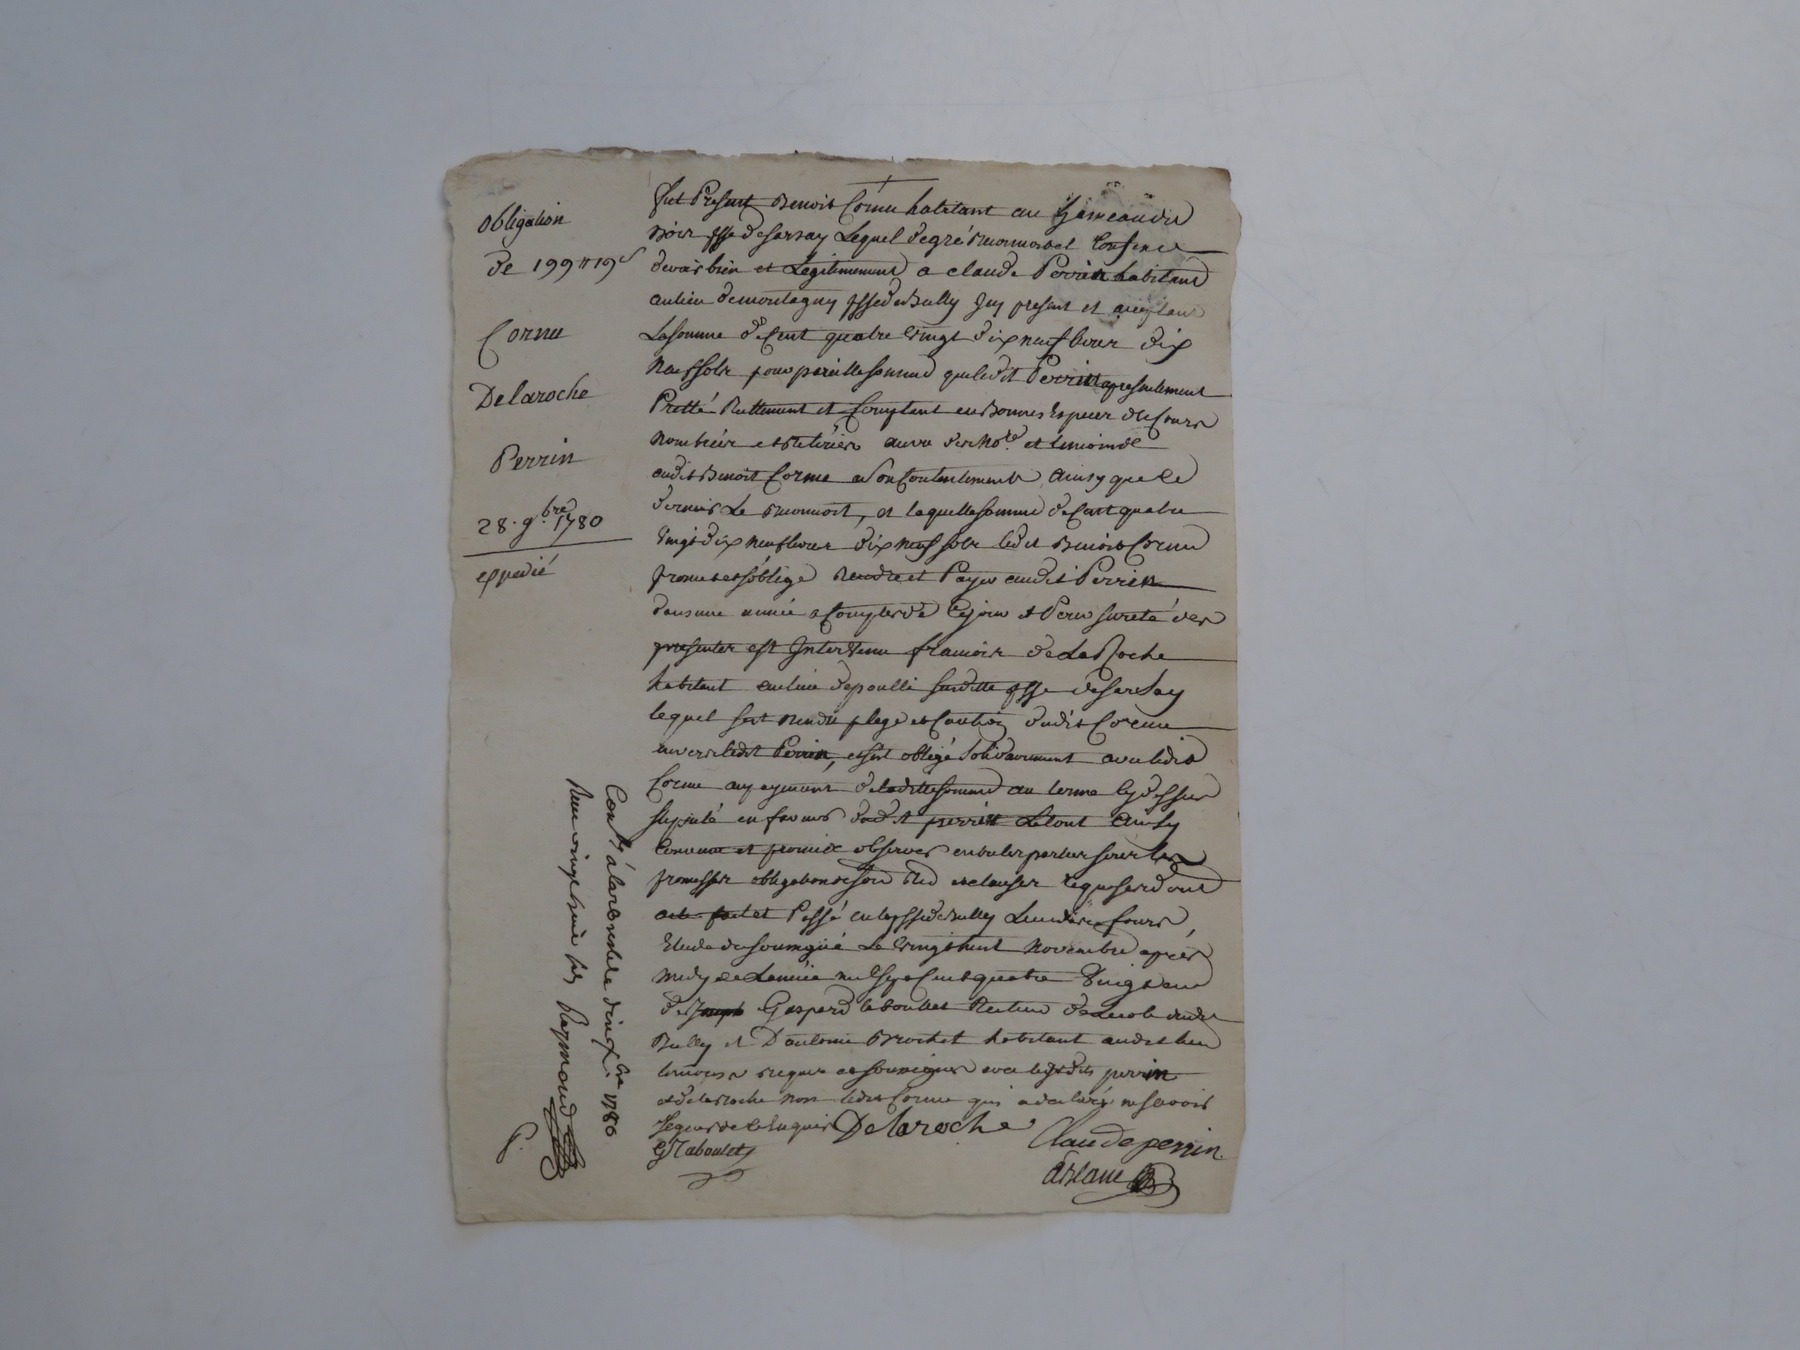 Obligation
de 199 ͭ ͭ 19 ˢ
Cornu
Delaroche
Perrin
28. 9.bre 1780
expedié
fut Present Benoit Cornu habitant au hameau du
noir psse de sarsay Lequel de gré Confesse
devoir bien et Legitimement a claude Perrin habitant
au lieu de montagny psse de Bully Icy present et acceptant
La somme de Cent quatre vingt dix neuf livres dix
neuf sols pour pareille somme que ledit Perrin a presentement
Pretté Reellement et Comptant en Bonnes Especes de Cours
nombrées et retirées au vu des no.re et temoins
audit Benoit Cornu a son Contentement ainsy que ce
dernier Le reconnoit, et laquelle somme de Cent quatre
vingt dix neuf livres dix neuf sols ledit Benoit Cornu
promet et s'oblige rendre et Payer audit Perrin
dans une année a Compter de Ce jour et Pour sureté des
presentes est Intervenu francois de La Roche
habitant au lieu de poulli susditte psse de sarsay
lequel s'est rendu plege et Caution dudit Cornu
envers ledit Perrin, et s'est obligé solidairement avec ledit
Cornu au payement de laditte somme au terme Cy dessus
stipulé en faveur dudit perrin Le tout ainsy
Convenu et promis observer
promesses obligations et clauses requises dont
acte fait et Passé en la psse de Bully
Etude du soussigné Le vingt huit novembre après
midy de L'année mil sept Cent quatre vingt en
de Gaspard taboulet Recteur de Lecole dudit
Bully et D'antoine Brochet habitant audit lieu
temoins requis et soussignés avec lesdits perrin
et de la roche non ledit Cornu qui a declaré ne savoir
signer de ce Enquis Delaroche Claude perrin
G Taboulet
Con.lé à larbresle 1780
Reçu vingt huit sols Raymond